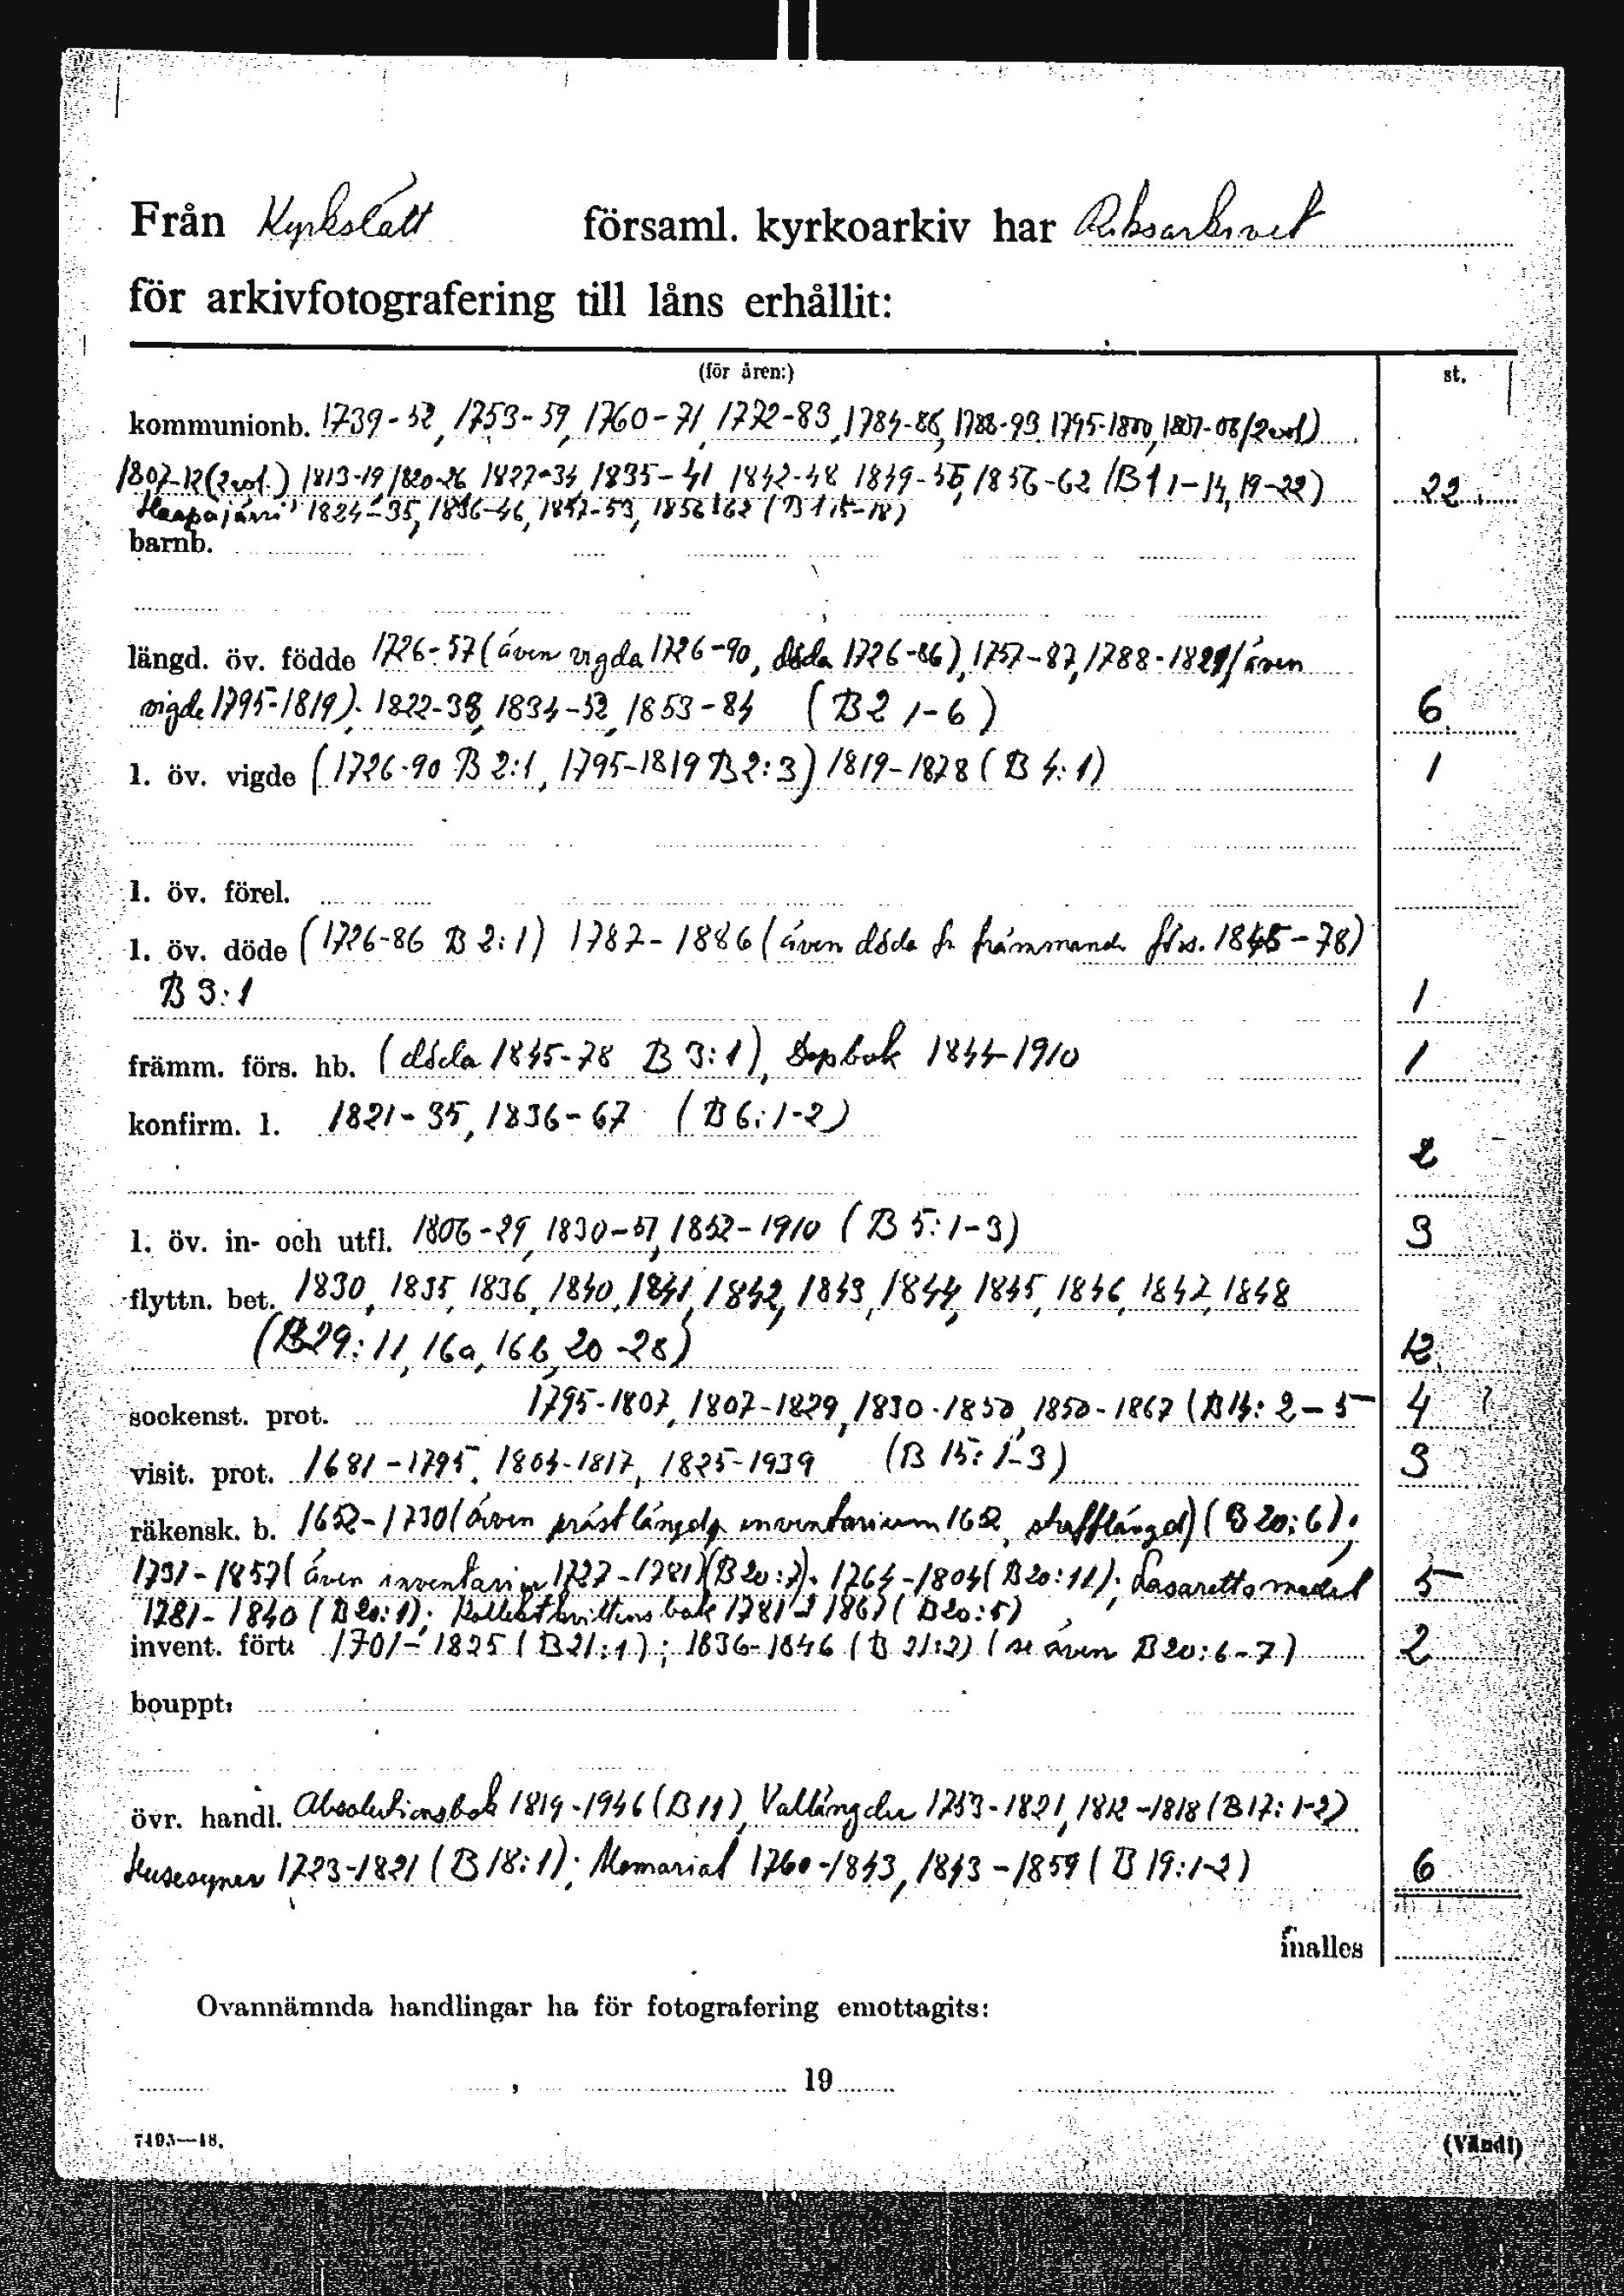 Från Kyrkslätt församl. kyrkoarkiv har Riksarkivet
för arkivfotografering till låns erhållit:
(för åren:) st.
kommunionb. 1739-52, 1753-59, 1760-71, 1772-83, 1784-86, 1788-93, 1795-1800, 1807-08 (2 vol)
1807-12 (2 vol.) 1813-19, 1820-26 1827-34, 1835-41 1842-48 1849-55, 1856-62 (B 1 1-14, 19-22) 22
Haapajärvi 1824-35, 1836-46, 1847-53, 1856-62 (B 1 15-18)
barnb.
längd. öv. födde 1726-57 (även vigda 1726-90, döda 1726-86), 1757-87, 1788-1821 (även
vigde 1795-1819). 1822-38, 1834-52, 1853-84 (B 2 1-6) 6
l. öv. vigde (1726-90 B 2:1, 1795-1819 B 2:3) 1819-1878 (B 4:1) 1
l. öv. förel.
l. öv. döde (1726-86 B 2:1) 1787-1886 (även döda fr främmande förs. 1845-78)
B 3:1 1
främm. förs. hb. (döda 1845-78 B 3:1), Dopbok 1844-1910 1
konfirm. l. 1821-35, 1836-67 (B 6:1-2)
2
l. öv. in- och utfl. 1806-29, 1830-51, 1852-1910 (B 5:1-3) 3
flyttn. bet. 1830, 1835, 1836, 1840, 1841, 1842, 1843, 1844, 1845, 1846, 1847, 1848
(B29:11, 16a, 16b, 20-28) 12
sockenst. prot. 1795-1807, 1807-1829, 1830-1850, 1850-1867 (B 14:2-5 4 ?
visit. prot. 1681-1795, 1804-1817, 1825-1939 (B 15:1-3) 3
räkensk. b. 1652-1730 (även prästlängd, inventarium 1652, strafflängd) (B 20:6);
1731-1857 (även inventarier 1727-1781) (B 20:7); 1764-1804 (B 20:11); Lasarettsmedel 5
1781-1840 (B 20:1); Kollektkvittensbok 1781-1867 (B20:5)
invent. fört: 1701-1825 (B 21:1); 1836-1846 (B 21:2) (se även B20:6-7) 2
bouppt:
övr. handl. Absolutionsbok 1819-1946 (B 11), Vallängder 1753-1821, 1812-1818 (B 17:1-2)
Husesyner 1723-1821 (B 18:1); Memorial 1760-1843, 1843-1859 (B 19:1-2) 6
inalles
Ovannämnda handlingar ha för fotografering emottagits:
, 19
7493—48. (Vänd!)